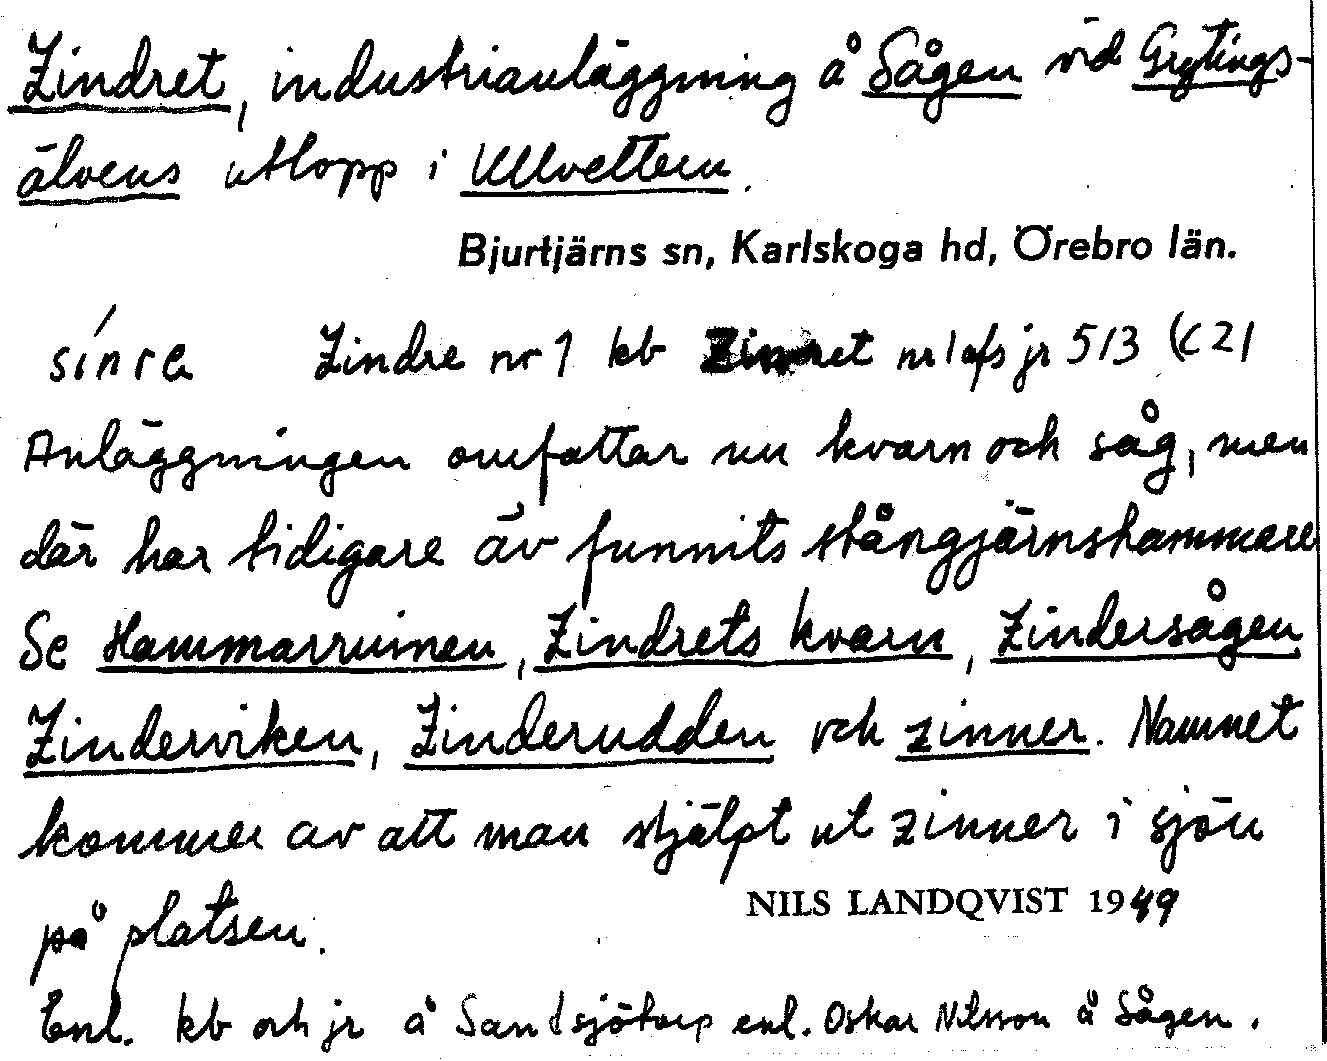 Zindret, industrianläggning å Sågen vid Grytings-
älvens utlopp i Ullvettern.
Bjurtjärns sn, Karlskoga hd, Örebro län.
sínre Zindre nr 1 kb Zinret nr 1 afs jr 513 (c 21
Anläggningen omfattar nu kvarn och såg, men
där har tidigare äv funnits stångjärnshammare
Se Hammarruinen, Zindrets kvarn, Zindersågen,
Zinderviken, Zinderudden och zinner. Namnet
kommer av att man stjälpt ut zinner i sjön
på platsen.
NILS LANDQVIST 1949
Enl. kb och jr å Sandsjötorp enl. Oskar Nilsson å Sågen.